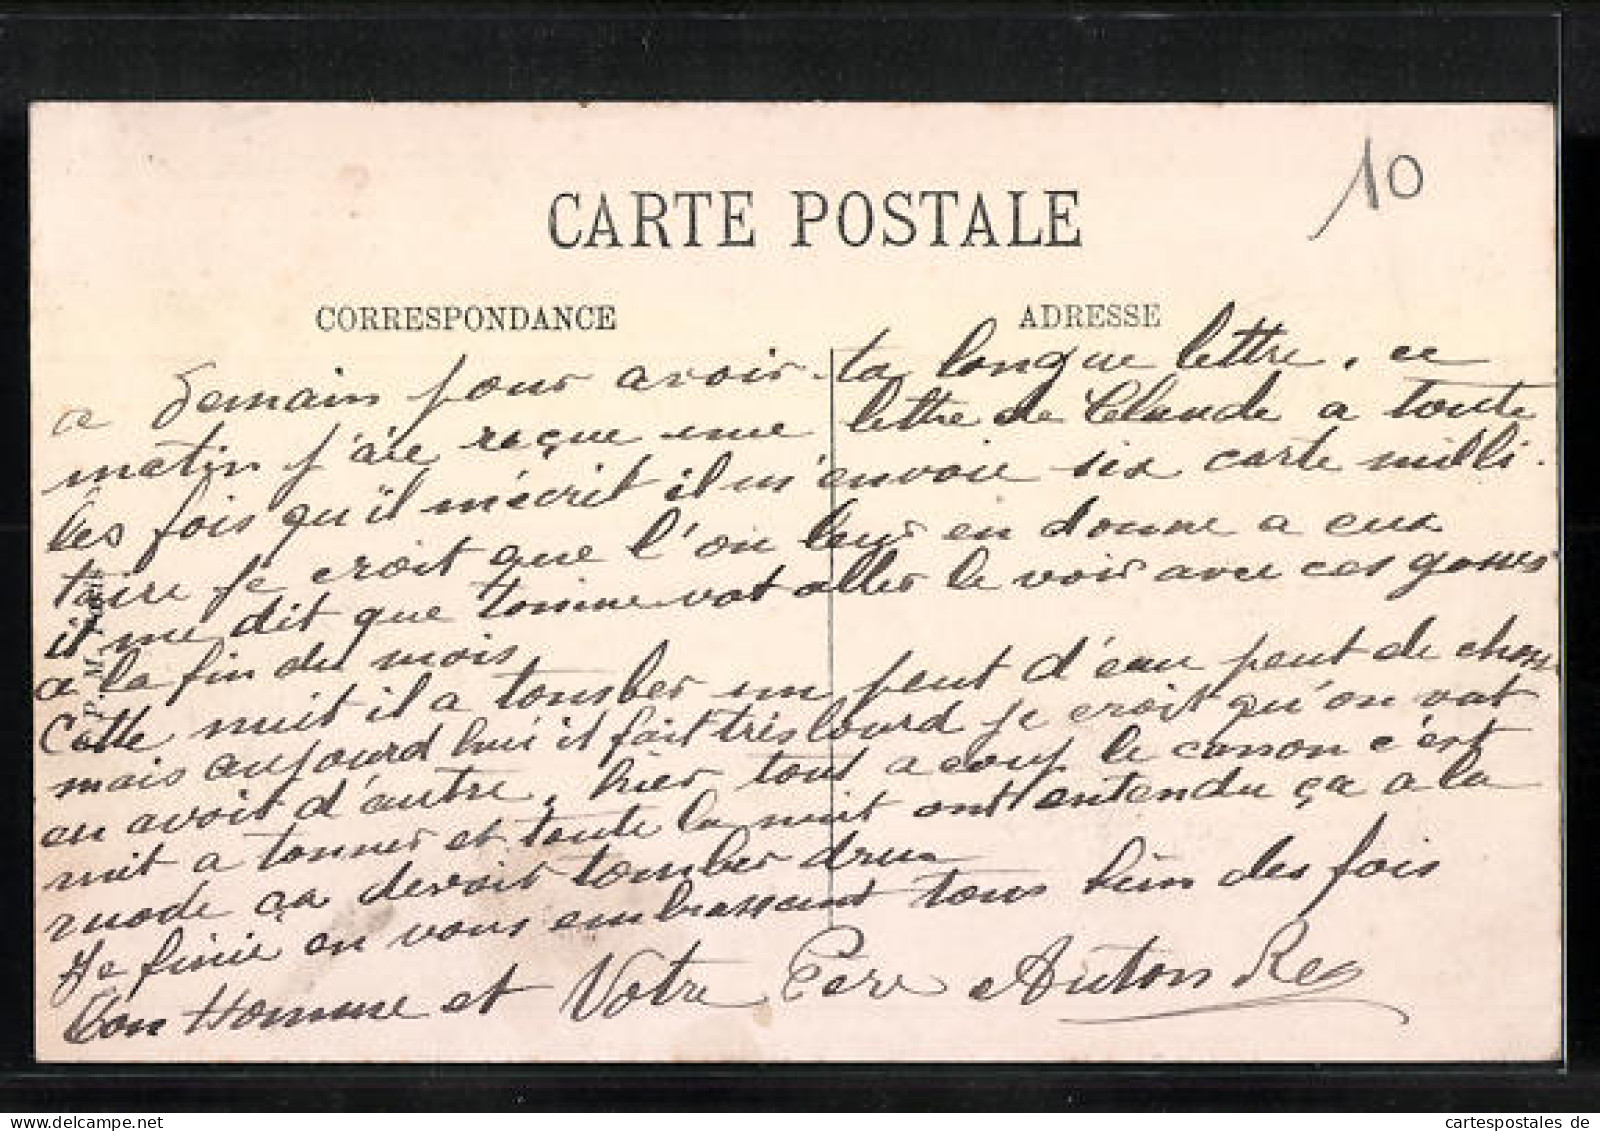 10
CARTE POSTALE
CORRESPONDANCE
ADRESSE
a demain pour avoir ta longue lettre. ce
matin j'aie reçue une lettre de Claude a toute
les fois qu'il m'écrit il m'envoie six carte milli-
taire je croit que l'on leur en donne a eux
il me dit que tonine vat aller le voir avec ces gosses
a la fin du mois
Cette nuit il a tomber un peut d'eau peut de chose
mais aujourd'hui il fait très lourd je croit qu'on vat
en avoir d'autre, hier tout a coup le canon c'est
mit a tonner et toute la nuit ont entendu ça a la
ruade ça devait tomber dru
Je finie en vous embrassant tous bien des fois
Ton Homme et Votre Père Anton Rey
P. M. PARIS
cartespostales de